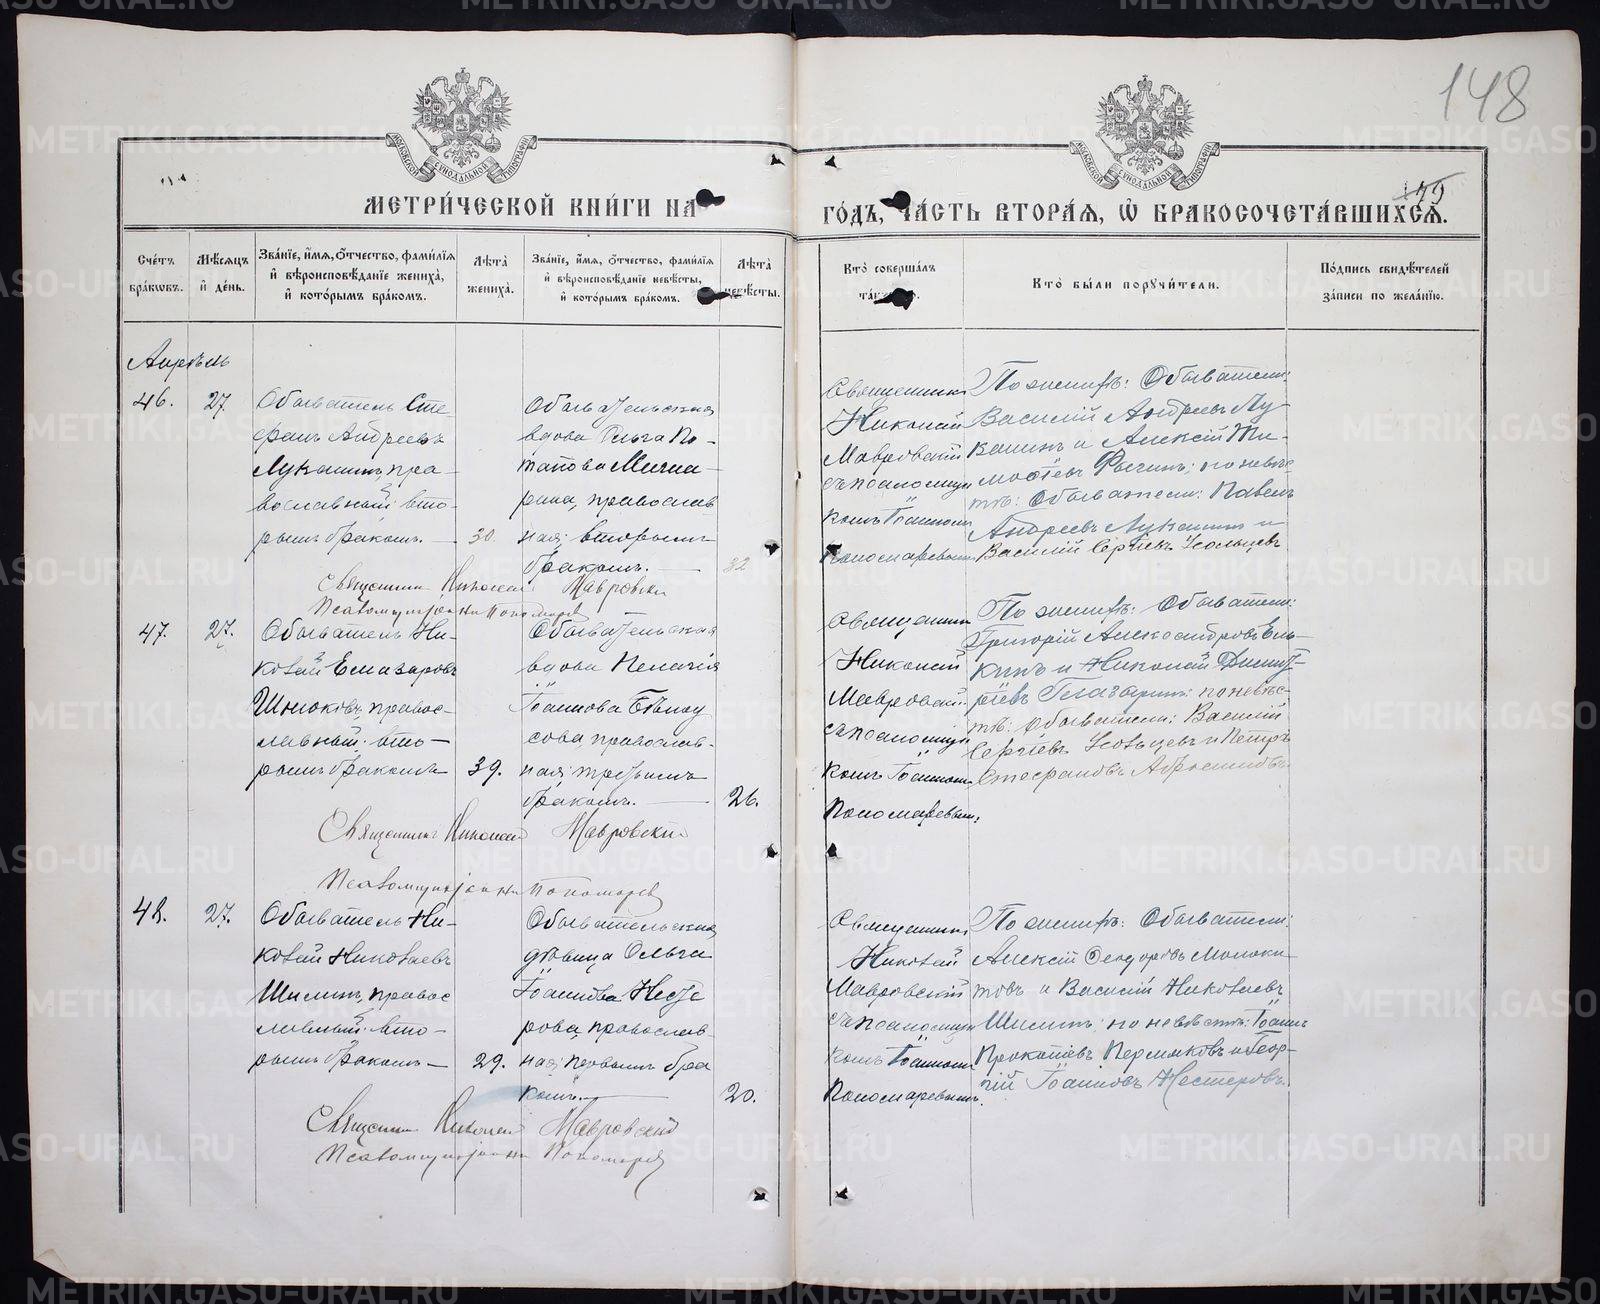 148
149
МЕТРИ́ЧЕСКОЙ КНИ́ГИ НА
ГО́ДЪ, ЧА́СТЬ ВТОРА́Я, Ѡ БРАКОСОЧЕТА́ВШИХСЯ.
Сче́тъ бра́ковъ.
Мѣ́сяцъ и де́нь.
Зва́нїе, и́мя, о́тчество, фами́лїя и вѣроисповѣ́данїе жениха́, и кото́рымъ бра́комъ.
Лѣта̀ жениха́.
Зва́нїе, и́мя, о́тчество, фами́лїя и вѣроисповѣ́данїе невѣ́сты, и кото́рымъ бра́комъ.
Лѣта̀ невѣ́сты.
Кто̀ соверша́лъ
Кто̀ бы́ли поручи́тели.
По́дпись свидѣ́телей за́писи по жела́нїю.
Апрѣль
46.
27
Обыватель Сте-
фанъ Андреевъ
Лукашинъ, пра-
вославный: вто-
рымъ бракомъ.
30.
Обывательская
вдова Ольга По-
тапова
православ
ная; вторымъ
бракомъ.
32
Священникъ
Николай
Мавровскій
съ псаломщи
комъ Іоанномъ
Пономаревымъ
По женихѣ: Обыватели:
Василій Андреевъ Лу-
кашинъ и Алексій Ти-
моѳеевъ
по невѣс-
тѣ: Обыватели: Павелъ
Андреевъ Лукашинъ и
Василій Сергіевъ Усольцевъ
Священникъ Николай Мавровскій
Псаломщикъ Іоаннъ Пономаревъ
47.
27.
Обыватель Ни-
колай Елиазаровъ
правос-
лавный: вто-
рымъ бракомъ
39.
Обывательская
вдова Пелагія
Іоаннова Бѣлоу
сова, православ-
ная; третьимъ
бракомъ.
26.
Священникъ
Николай
Мавровскій
съ псаломщи
комъ Іоанномъ
Пономаревымъ;
По женихѣ: Обыватели:
Григорій Александровъ Ель-
кинъ и Николай Димит-
ріевъ
по невѣс-
тѣ: Обыватели: Василій
Сергіевъ Усольцевъ и Петръ
Стефановъ Абросимовъ.
Священникъ Николай Мавровскій
Псаломщикъ Іоаннъ Пономаревъ
48.
27.
Обыватель Ни-
колай Николаевъ
Шилинъ, правос
лавный: вто-
рымъ бракомъ
29.
Обывательская
дѣвица Ольга
Іоаннова Несте
рова, православ-
ная; первымъ бра
комъ.
20.
Священникъ
Николай
Мавровскій
съ псаломщи
комъ Іоанномъ
Пономаревымъ.
По женихѣ: Обыватели:
Алексій Ѳеодоровъ Молоки-
товъ и Василій Николаевъ
Шилинъ; по невѣстѣ: Іоаннъ
Прокопіевъ Пермяковъ и Геор-
гій Іоанновъ Нестеровъ.
Священникъ Николай Мавровскій
Псаломщикъ Іоаннъ Пономаревъ
METRIKI.GASO-URAL.RU